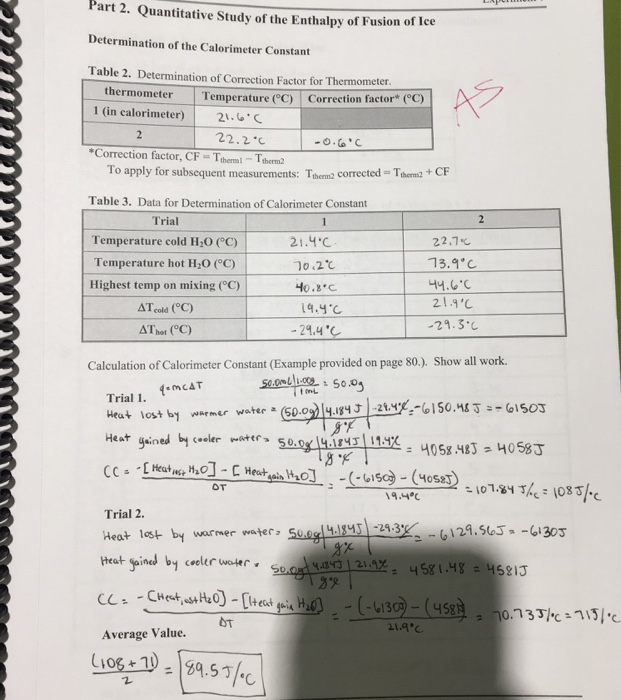 Part 2. Quantitative Study of the Enthalpy of Fusion of Ice
Determination of the Calorimeter Constant
Table 2. Determination of Correction Factor for Thermometer.
thermometer Temperature (°C) Correction factor* (°C)
1 (in calorimeter) 21.6°C
2 22.2°C -0.6°C
*Correction factor, CF = Ttherm1 − Ttherm2
To apply for subsequent measurements: Ttherm2 corrected = Ttherm2 + CF
AS
Table 3. Data for Determination of Calorimeter Constant
Trial 1 2
Temperature cold H₂O (°C) 21.4°C 22.7°C
Temperature hot H₂O (°C) 70.2°C 73.9°C
Highest temp on mixing (°C) 40.8°C 44.6°C
ΔTcold (°C) 19.4°C 21.9°C
ΔThot (°C) -29.4°C -29.3°C
Calculation of Calorimeter Constant (Example provided on page 80.). Show all work.
q=mcΔT 50.0mL | 1.00g / 1mL = 50.0g
Trial 1.
Heat lost by warmer water = (50.0g) | 4.184J / g°C | -29.4°C = -6150.48J = -6150J
Heat gained by cooler water = 50.0g | 4.184J / g°C | 19.4°C = 4058.48J = 4058J
CC = -[Heat lost H₂O] - [Heat gain H₂O] / DT = -(-6150) - (4058J) / 19.4°C = 107.84 J/°C = 108J/°C
Trial 2.
Heat lost by warmer water = 50.0g | 4.184J / g°C | -29.3°C = -6129.56J = -6130J
Heat gained by cooler water = 50.0g | 4.184J / g°C | 21.9°C = 4581.48 = 4581J
CC = -[Heat lost H₂O] - [Heat gain H₂O] / DT = -(-6130J) - (4581J) / 21.9°C = 70.73J/°C = 71J/°C
Average Value.
(108 + 71) / 2 = 89.5 J/°C